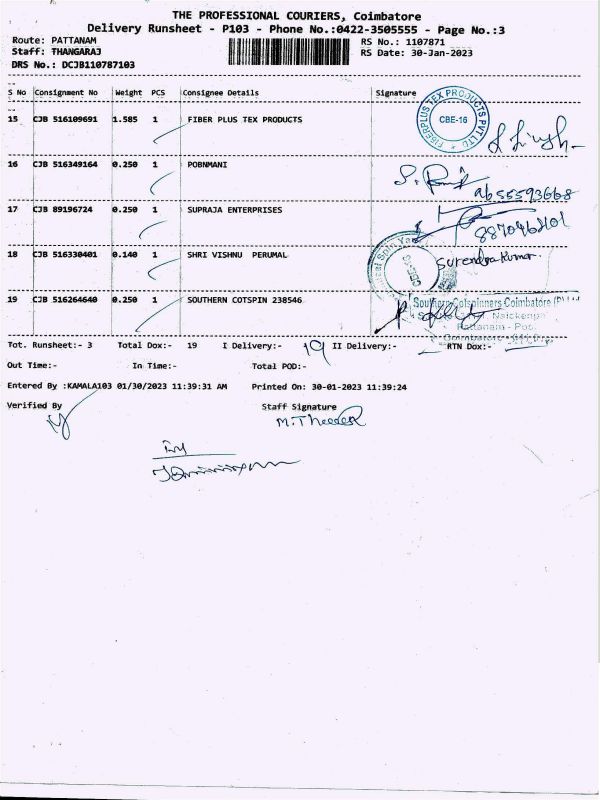 THE PROFESSIONAL COURIERS, Coimbatore
Delivery Runsheet - P103 - Phone No.:0422-3505555 - Page No.:3
Route: PATTANAM
RS No.: 1107871
Staff: THANGARAJ
RS Date: 30-Jan-2023
DRS No.: DCJB110787103
S No Consignment No Weight PCS Consignee Details Signature
15 CJB 516109691 1.585 1 FIBER PLUS TEX PRODUCTS
FIBERPLUS TEX PRODUCTS PVT LTD
CBE-16
16 CJB 516349164 0.250 1 POBNMANI
17 CJB 89196724 0.250 1 SUPRAJA ENTERPRISES
18 CJB 516330401 0.140 1 SHRI VISHNU PERUMAL
Surendra Kumar.
19 CJB 516264640 0.250 1 SOUTHERN COTSPIN 238546
Southern Cotspinners Coimbatore
Pattanam - Post
Tot. Runsheet:- 3 Total Dox:- 19 I Delivery:- 19 II Delivery:- RTN Dox:-
Out Time:- In Time:- Total POD:-
Entered By :KAMALA103 01/30/2023 11:39:31 AM Printed On: 30-01-2023 11:39:24
Verified By Staff Signature